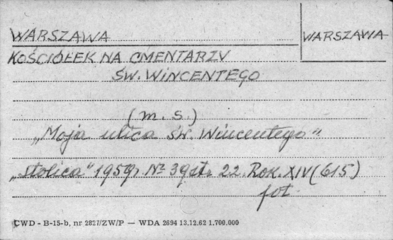 WARSZAWA
WARSZAWA
KOŚCIÓŁEK NA CMENTARZU
ŚW. WINCENTEGO
(m. s.)
"Moja ulica św. Wincentego"
"Stolica" 1959r. Nr 39 st. 22. Rok. XIV (615)
fot.
CWD - B-15-b, nr 2827/ZW/P — WDA 2694 13.12.62 1.700.000